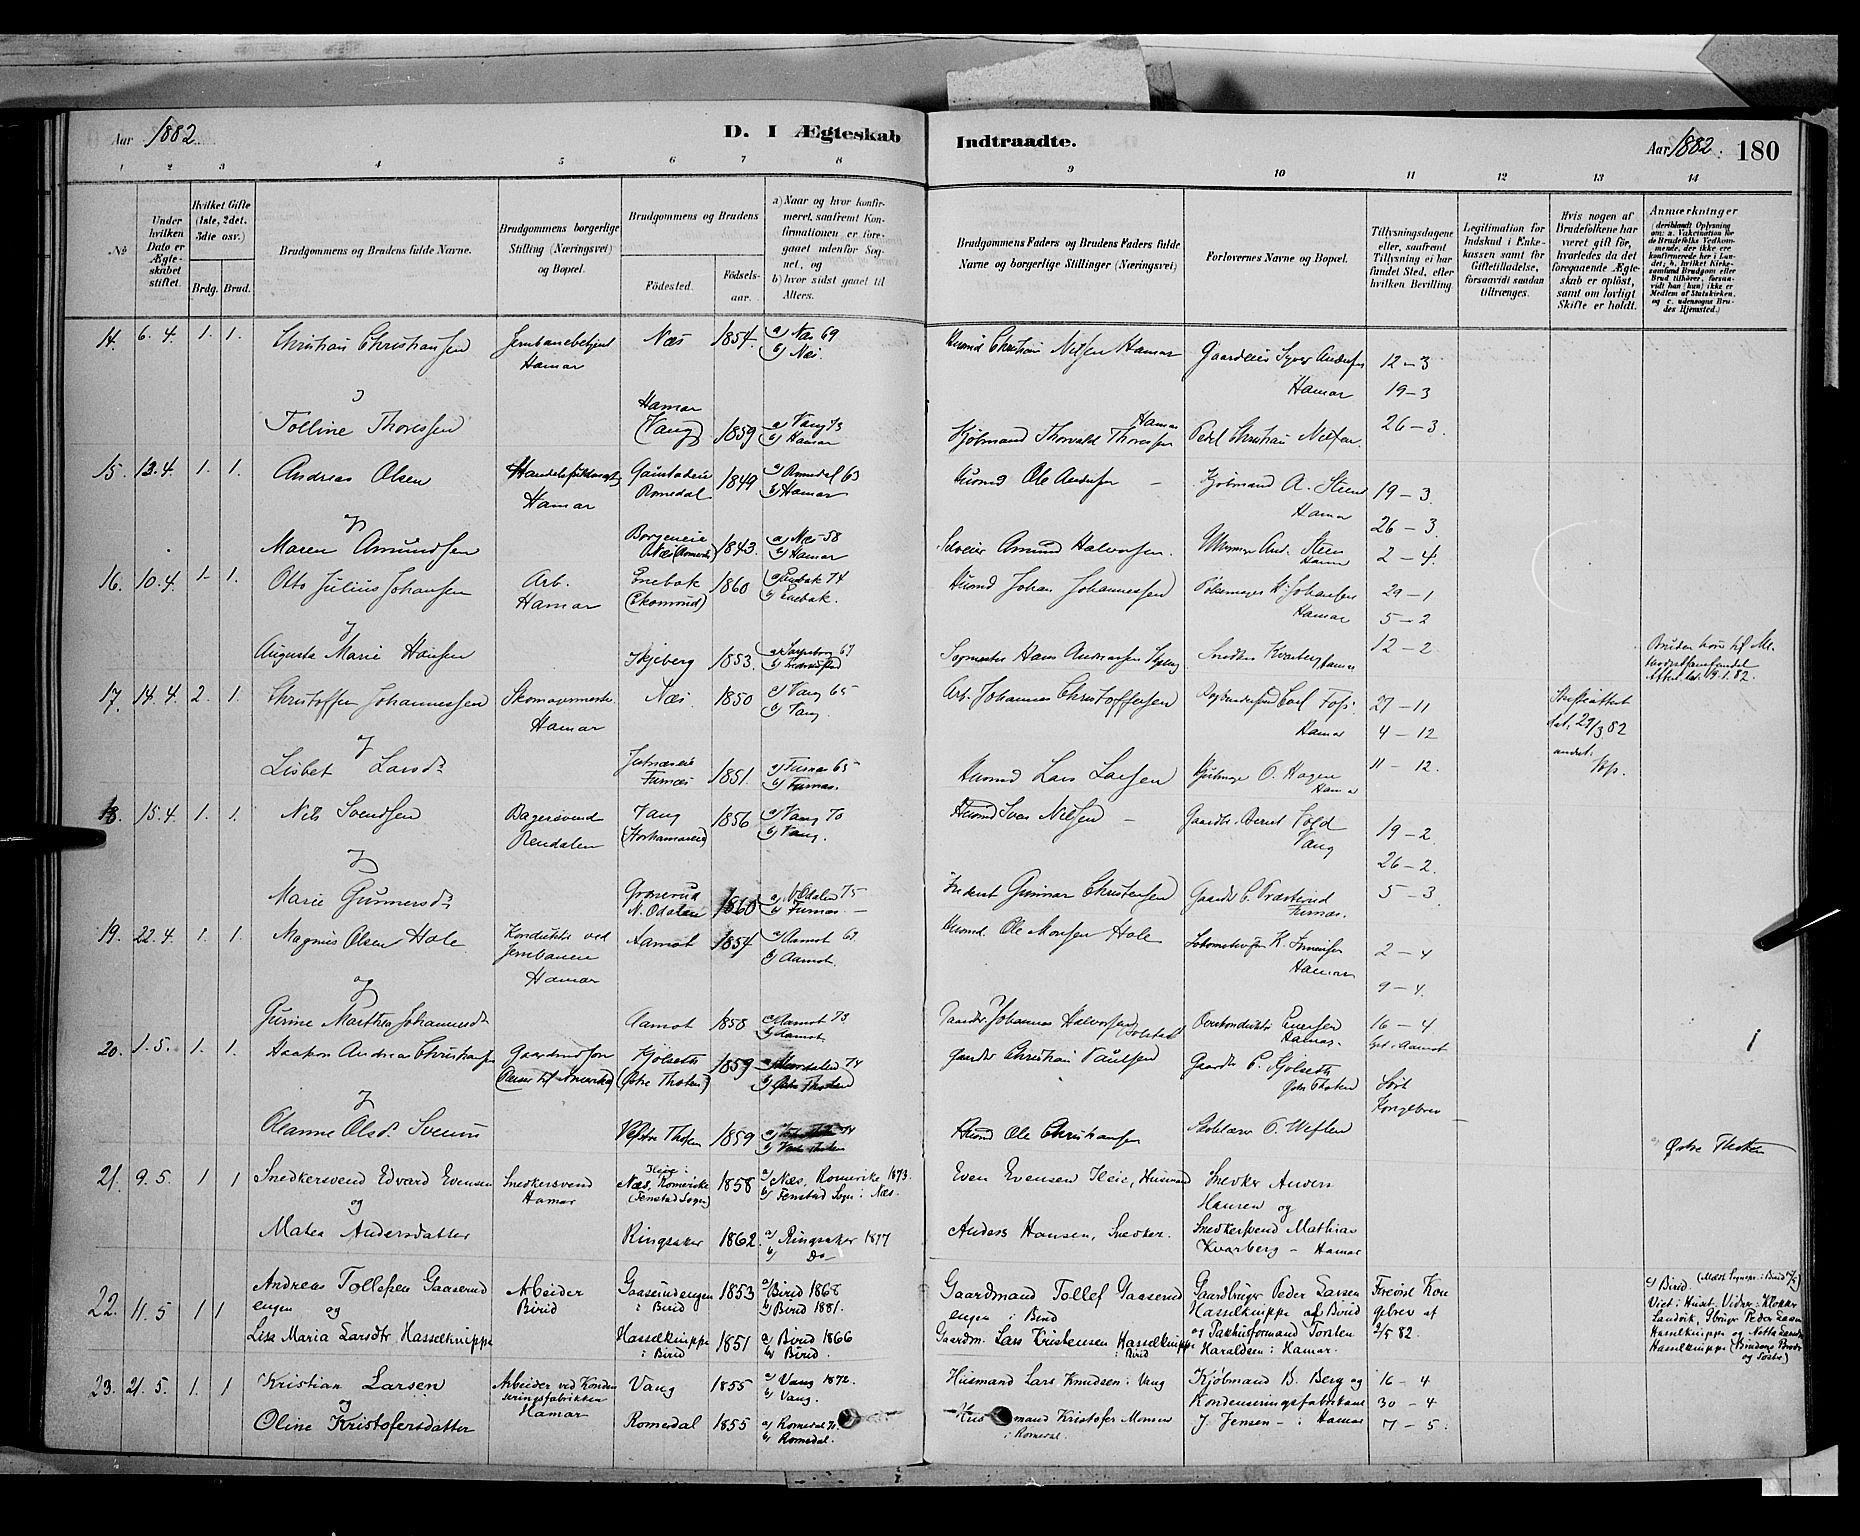 Aar 1882
D. I Ægteskab
Indtraadte.
Aar 1882. 180
1 2 3 4 5 6 7 8 9 10 11 12 13 14
No
Under hvilken Dato er Ægteskabet stiftet.
Hvilket Gifte (1ste, 2det, 3die osv.)
Brdg. Brud.
Brudgommens og Brudens fulde Navne.
Brudgommens borgerlige Stilling (Næringsvei) og Bopæl.
Brudgommens og Brudens
Fødested. Fødselsaar.
a) Naar og hvor konfirmeret, saafremt Konfirmationen er foregaaet udenfor Sognet, og
b) hvor sidst gaaet til Alters.
Brudgommens Faders og Brudens Faders fulde Navne og borgerlige Stillinger (Næringsvei)
Forlovernes Navne og Bopæl.
Tillysningsdagene eller, saafremt Tillysning ei har fundet Sted, efter hvilken Bevilling.
Legitimation for Indskud i Enkekassen samt for Giftetilladelse, forsaavidt saadan tiltrænges.
Hvis nogen af Brudefolkene har været gift før, hvorledes da det foregaaende Ægteskab er opløst, samt om lovligt Skifte er holdt.
Anmærkninger
(deriblandt Oplysning om: a. Vakcination for de Brudefolks Vedkommende, der ikke ere konfirmerede her i Landet; b. hvilket Kirkesamfund Brudgom eller Brud tilhører, forsaavidt han (hun) ikke er Medlem af Statskirken, og c. udensogns Brudes Hjemsted.)
14. 6.4. 1. 1. Christian Christiansen Jernbanebetjent Næs 1854. a) Næs 69 Husmd Christian Nilsen Hamar Gaardeier Syver Andersen 12-3
Hamar b) Næs. Hamar 19-3
Tolline Thoresen Hamar (Vang) 1859 a) Vang 73 b) Hamar Kjøbmand Thorvald Thoresen Hamar Christian Nilsen 26-3.
15. 13.4. 1. 1. Andreas Olsen Hamar Romedal 1849 a) Romedal 63 b) Hamar Husmd Ole Andersen Kjøbmand A. Steen Hamar 19-3
26-3
Maren Amundsen Næs (Romerike) 1843. a) Næs 58 b) Hamar Selveier Amund Halvorsen. And. Steen Hamar 2-4.
16. 10.4. 1. 1. Otto Julius Johansen Arb. Hamar Enebak 1860 a) Enebak 74 b) Enebak. Husmd Johan Johannessen Johansen Hamar 29-1
5-2
Augusta Marie Hansen Skjeberg 1853. a) Sarpsborg 67 Hans Andreassen Snedker Kvarberg Hamar 12-2
17. 14.4. 2. 1. Christoffer Johannessen Skomagermester Hamar Næs 1850 a) Vang 65 b) Vang. Arb. Johannes Christoffersen Carl Foss. Hamar 27-11
4-12
Skifteattest dat. 29/3 82
Lisbet Larsdr. Furnæs 1851 a) Furnæs 65 b) Furnæs. Husmd Lars Larsen O. Hagen Hamar 11-12.
18. 15.4. 1. 1. Nils Svendsen Bagersvend Rendalen Vang 1856 a) Vang 70 b) Vang. Husmd Sven Nilsen Gaardbr. Bernt Vold Vang 19-2
26-2
Marie Gunnersdr. Grønerud N. Odalen 1860 a) N. Odalen 75 b) Furnæs. Gunnar Christensen Gaardbr. C. Præsterud Furnæs. 5-3
19. 22.4. 1. 1. Magnus Olsen Hole Konduktør ved Jernbanen Hamar Aamot 1854 a) Aamot 69 b) Aamot. Husmd. Ole Monsen Hole Hamar 2-4
9-4.
og
Gurine Marthea Johannesdr. Aamot 1858 a) Aamot 73 b) Aamot Johannes Halvorsen Overkonduktør Iversen Hamar. 16-4
20. 1.5. 1. 1. Haaken Andreas Christiansen Gaardmandssøn (Reiser til Amerika) Kjølseth (Østre Thoten) 1859 b) Østre Thoten Gaardbr Christian Paulsen Gaardbr C. Kjølseth Østre Thoten Kongebrev
Oleanne Olsdr. Sveum Vestre Thoten 1859 b) Vestre Thoten Husmd Ole Christiansen Skolelærer O. Weflen Østre Thoten
21. 9.5. 1 1 Snedkersvend Edvard Evensen Snedkersvend Hamar Næs, Romerike (Fenstad Sogn) 1858 a) Næs. Romerike 1873. b) Fenstad Sogn i Næs. Even Evensen Heie, Husmand Snedker Anders Hansen og
og
Matea Andersdatter Ringsaker 1862. a) Ringsaker 1877 b) Do Anders Hansen, Snedker. Snedkersvend Mathias Kvarberg - Hamar
22. 11.5 1 1 Andreas Tollefsen Gaaserudengen Arbeider Birid Gaaserudengen i Birid 1853 a) Birid 1868 b) Birid 1881. Gaardmand Tollef Gaaserudengen i Birid Gaardbruger Peder Larsen Hasselknippe af Birid Forevist Kongebrev af 2/5 82.
og
Lisa Maria Larsdtr Hasselknippe Hasselknippe i Birid 1851 a) Birid 1866 b) Birid. Gaardm. Lars Kristensen Hasselknippe i Birid og Pakhusformand Torsten Haraldsen i Hamar.
c) Birid. Viet i Huset. Vidner: Klokker Landvik, Gbruger Peder Larsen Hasselknippe og Netta Larsdtr Hasselknippe (Brudens Broder og Søster)
23. 21.5. 1. 1 Kristian Larsen Arbeider ved Kondenseringsfabrikken Hamar Vang 1855 a) Vang 1872. b) Vang. Husmand Lars Knudsen i Vang Kjøbmand B. Berg og 16-4
og
Oline Kristofersdatter Romedal 1855 a) Romedal 71. b) Romedal. Husmand Kristofer Monsen i Romedal. Kondenseringsfabrikant J. Jensen - i Hamar 30-4
7-5.